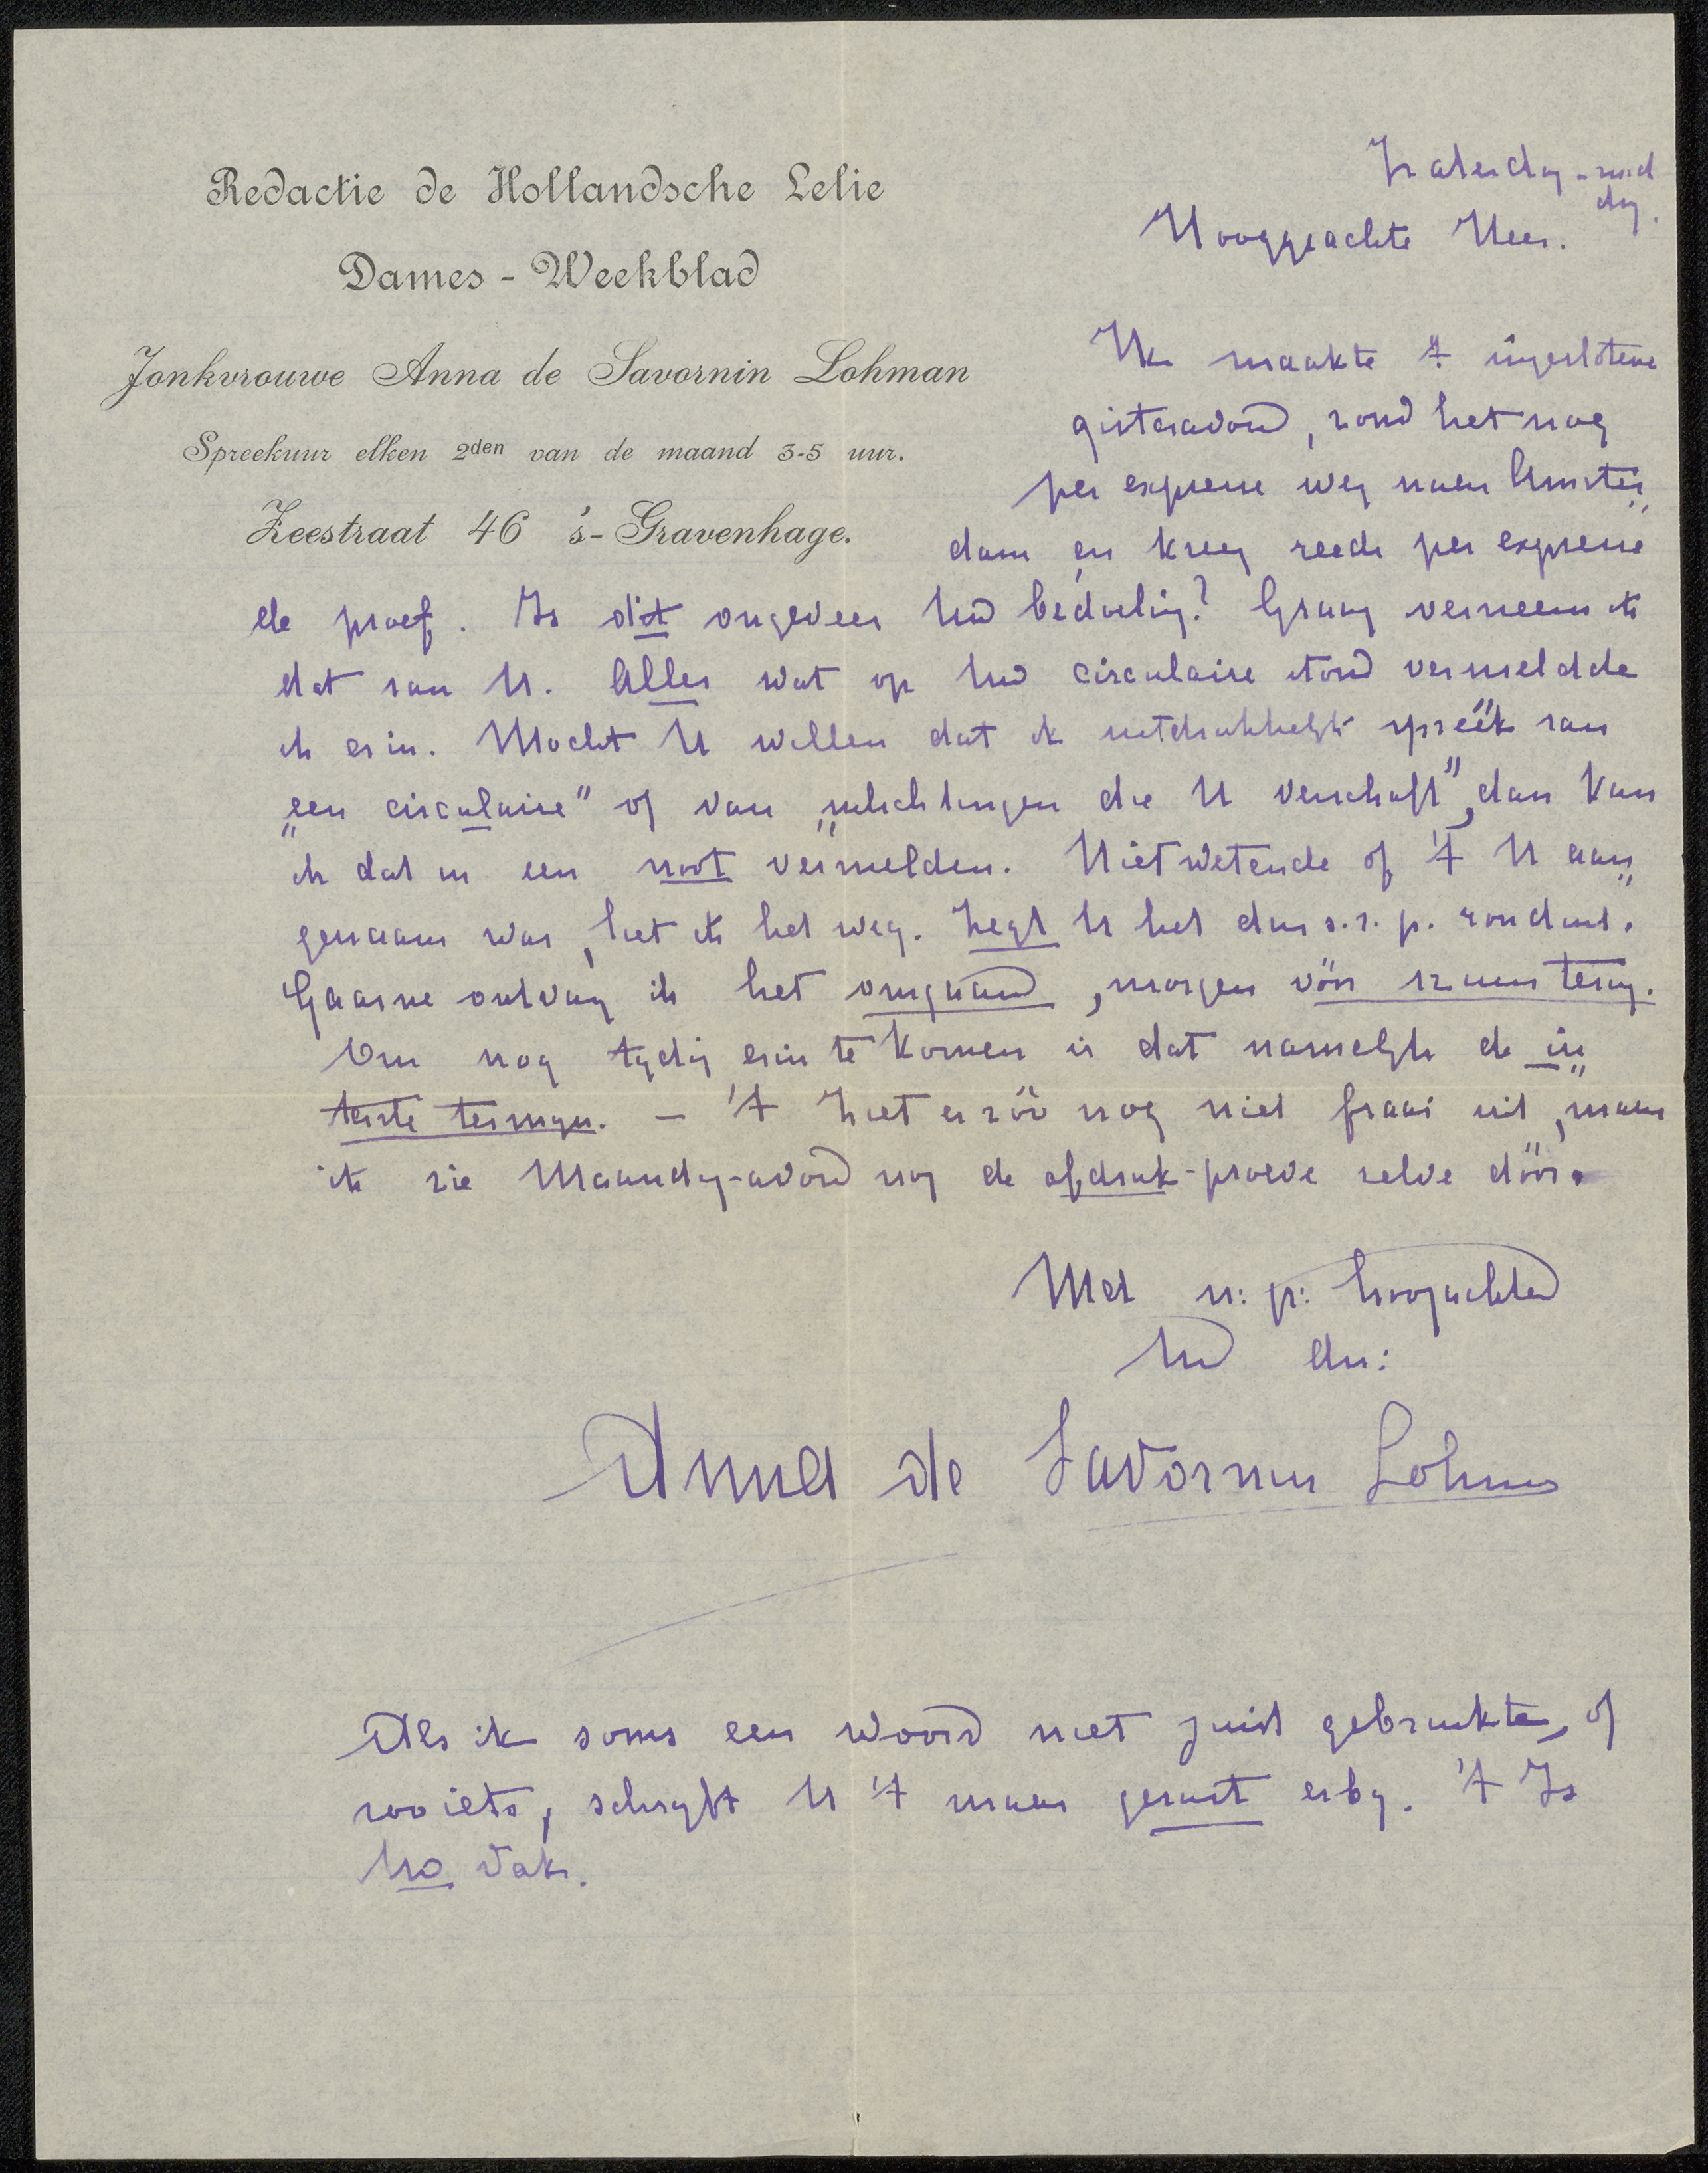 Redactie de Hollandsche Lelie
Dames - Weekblad
Jonkvrouwe Anna de Savornin Lohman
Spreekuur elken 2den van de maand 3-5 uur.
Zeestraat 46 's-Gravenhage.
Zaterdag-mid
dag.
Hooggeachte Heer.
Ik maakte 't ingeslotene
gisteravond, zond het nog
per expresse weg naar Amster„
dam en kreeg reeds per expresse
de proef. Is dit ongeveer Uw bedoeling? Graag verneem ik
dat van U. Alles wat op Uw circulaire stond vermeldde
ik erin. Mocht U willen dat ik uitdrukkelijk spreek van
„een circulaire" of van „inlichtingen die U verschaft", dan kan
ik dat in een noot vermelden. Niet wetende of 't U aan„
genaam was, liet ik het weg. Zegt U het dus s.v.p. ronduit.
Gaarne ontvang ik het omgaand, morgen vóór 12 uur terug.
Om nog tijdig erin te komen is dat namelijk de ui„
terste termijn. — 't Ziet er zóó nog niet fraai uit, maar
ik zie Maandag-avond nog de afdruk-proeve zelve dóór.
Met u: p: hoogachtend
Uw dn:
Anna de Savornin Lohman
Als ik soms een woord niet juist gebruikte, of
zoo iets, schrijft U 't maar gerust erbij. 't Is
Uw vak.